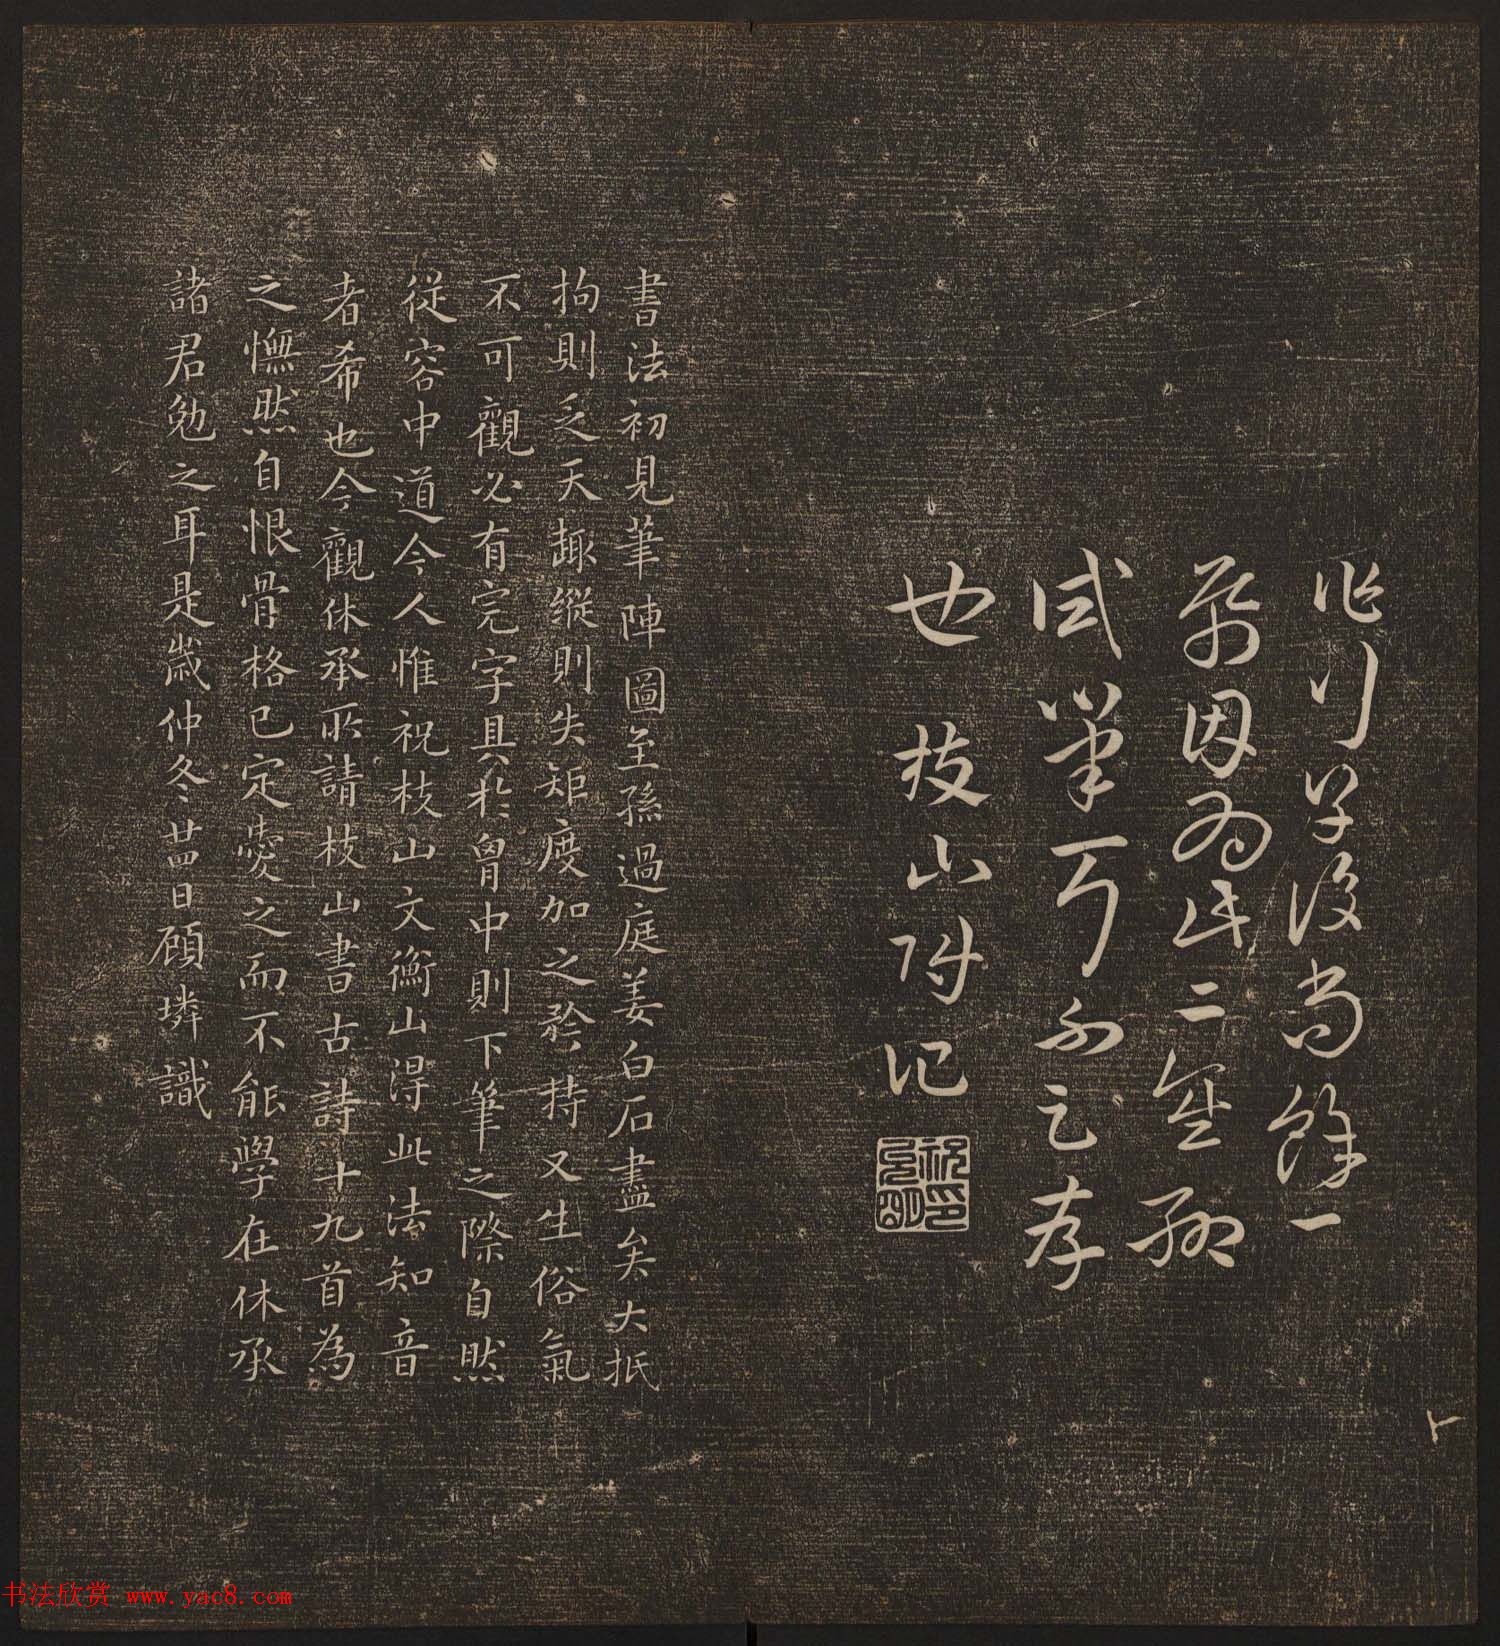 作行草後尚餘一
帋因為此二聊
試筆耳不足存
也 枝山附记
祝允明印
書法初見筆陣圖至孫過庭姜白石盡矣大抵
拘則乏天趣縱則失矩度加之矜持又生俗氣
不可觀必有完字具於胷中則下筆之際自然
從容中道今人惟祝枝山文衡山得此法知音
者希也今觀休承所請枝山書古詩十九首為
之憮然自恨骨格已定愛之而不能學在休承
諸君勉之耳是歲仲冬廿四日顧璘識
书法欣赏 www.yac8.com